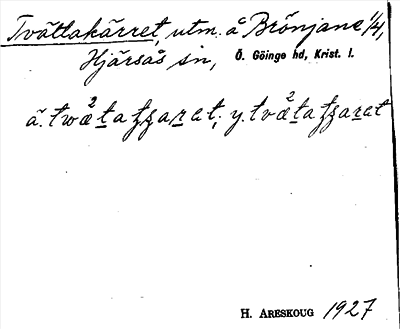 Tvättakärret, utm. å Brönjane 1/4,
Hjärsås sn, Ö. Göinge hd, Krist. l.
ä. y.
H. ARESKOUG 1927